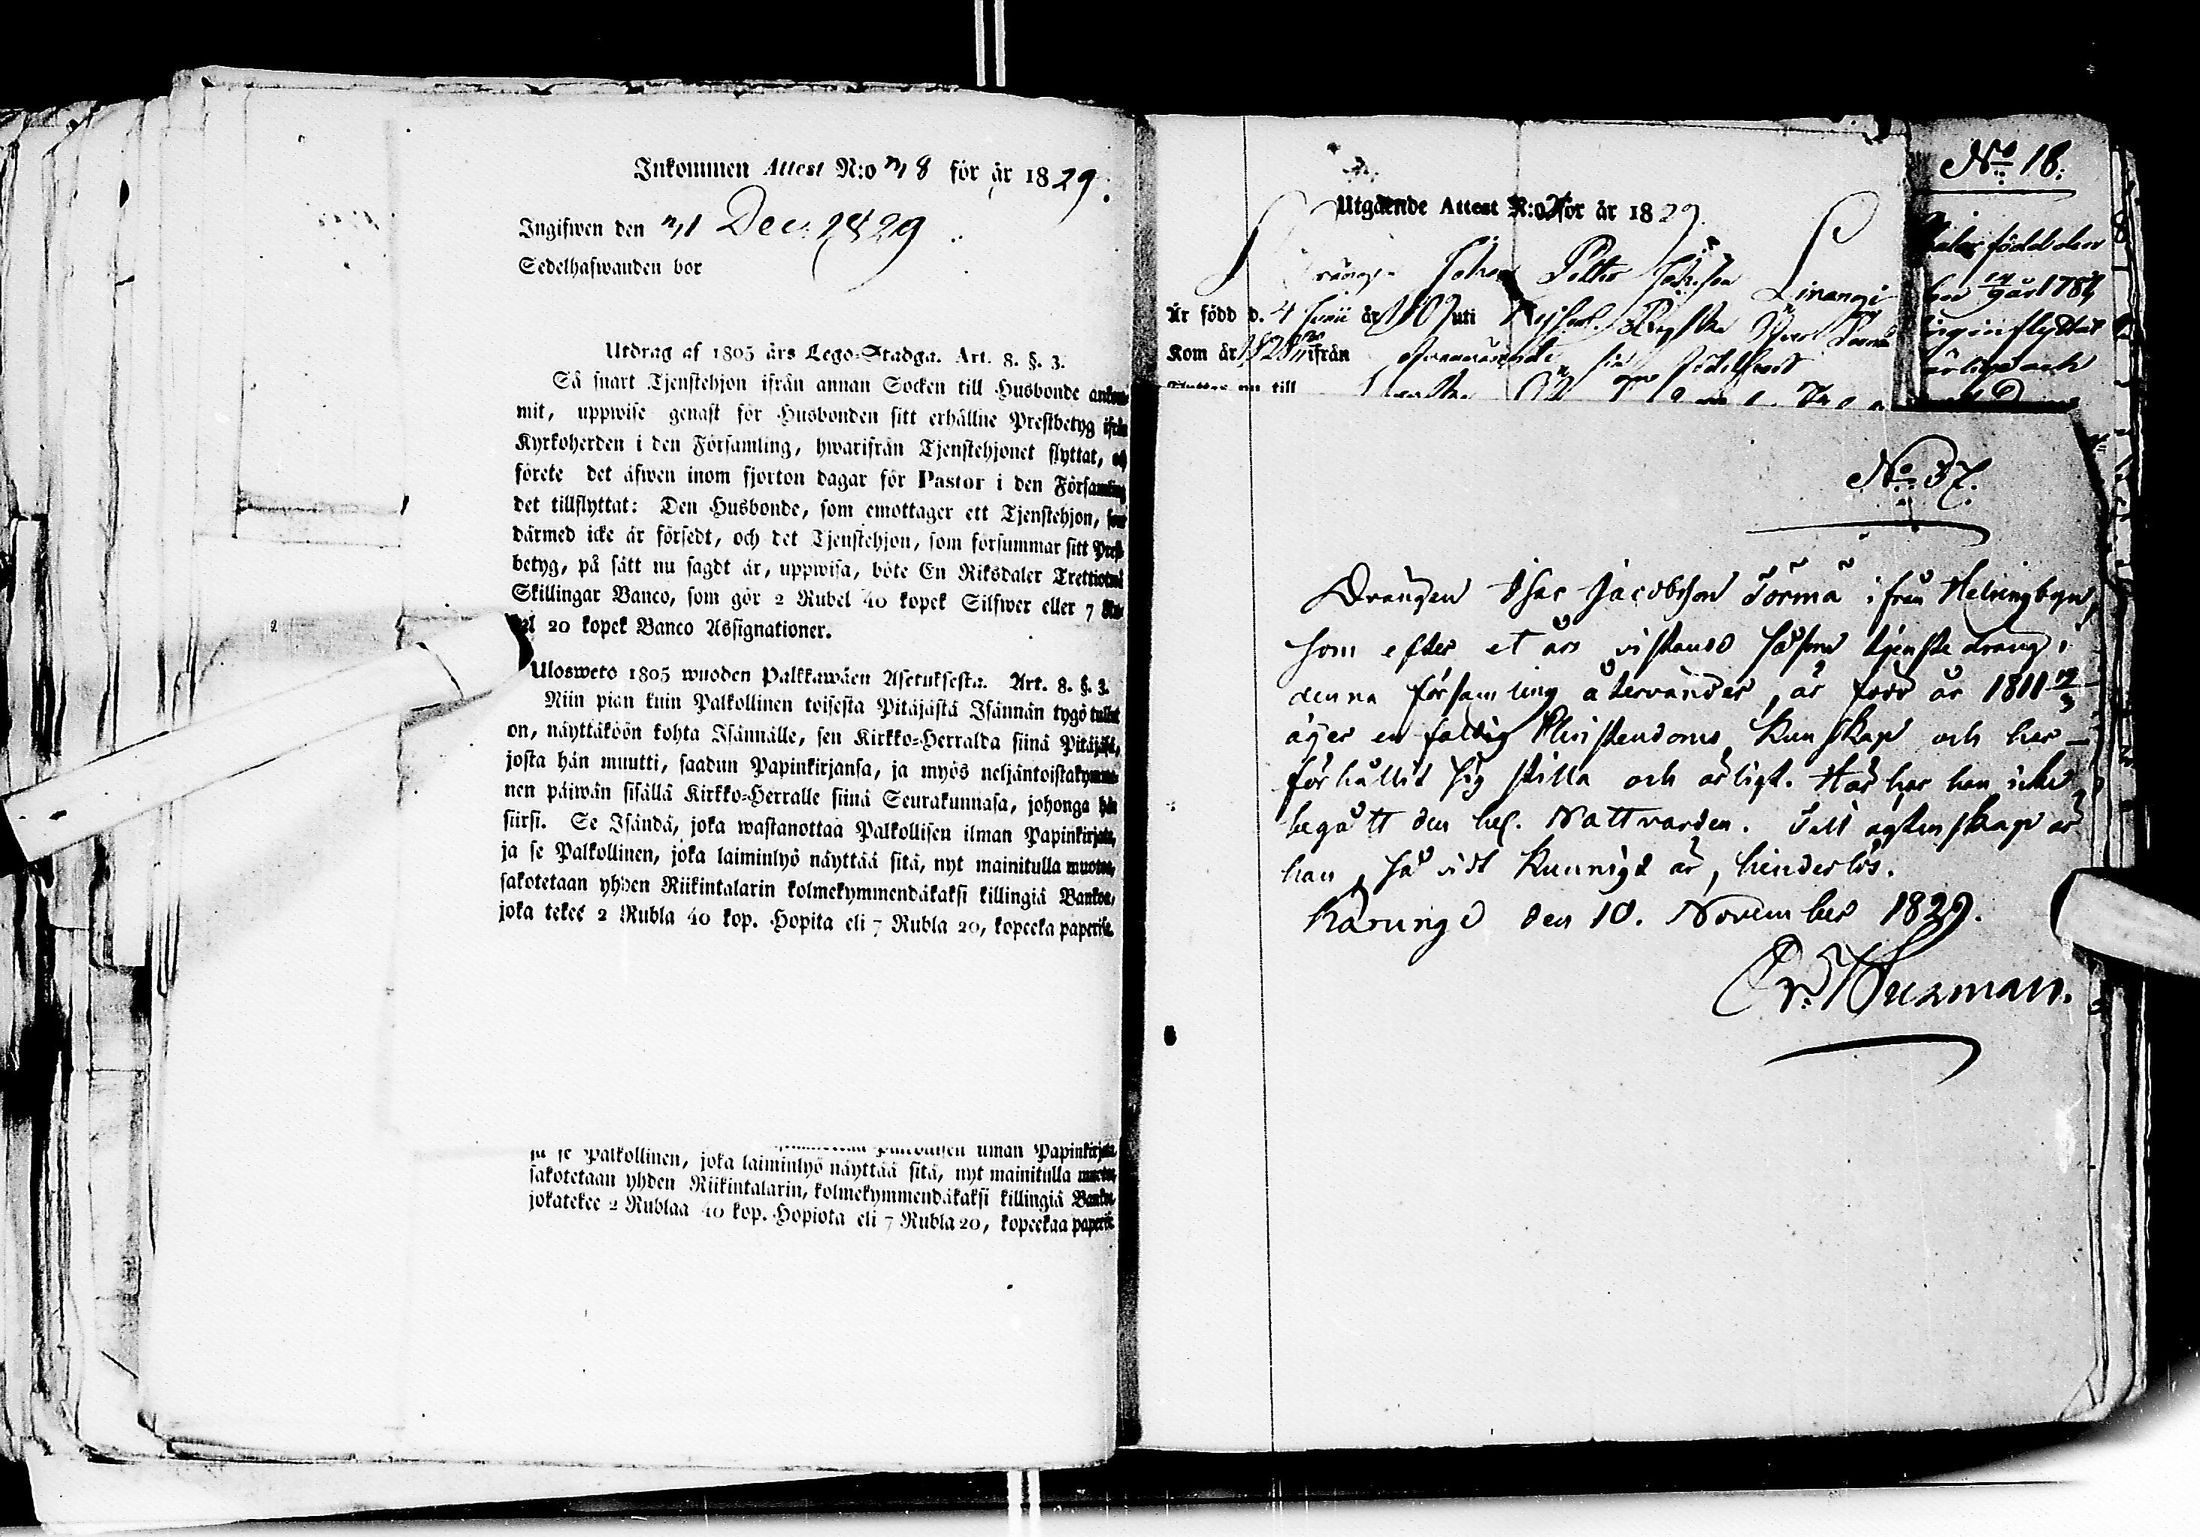 Inkommen Attest N:o 18 för år 1829.
Ingifwen den 1 Dec. 1829
Sedelhafwanden bor
Utdrag af 1805 års Lego-Stadga. Art. 8. §. 3.
Så snart Tjenstehjon ifrån annan Socken till Husbonde ankom-
mit, uppwise genast för Husbonden sitt erhållne Prestbetyg ifrån
Kyrkoherden i den Församling, hwarifrån Tjenstehjonet flyttat, och
förete det äfwen inom fjorton dagar för Pastor i den Församling
det tillflyttat: Den Husbonde, som emottager ett Tjenstehjon, som
därmed icke är försedt, och det Tjenstehjon, som försummar sitt Prest-
betyg, på sätt nu sagdt är, uppwisa, böte En Riksdaler Trettiotwå
Skillingar Banco, som gör 2 Rubel 40 kopek Silfwer eller 7 Ru-
bel 20 kopek Banco Assignationer.
Ulosweto 1805 wuoden Palkkawäen Asetuksesta. Art. 8. §. 3.
Niin pian kuin Palkollinen toisesta Pitäjästä Isännän tygö tullut
on, näyttäköön kohta Isännälle, sen Kirkko-Herralda siinä Pitäjäsä,
josta hän muutti, saadun Papinkirjansa, ja myös neljäntoistakymme-
nen päiwän sisällä Kirkko-Herralle siinä Seurakunnasa, johonga hän
siirsi. Se Isändä, joka wastanottaa Palkollisen ilman Papinkirjata,
ja se Palkollinen, joka laiminlyö näyttää sitä, nyt mainitulla muotoa,
sakotetaan yhden Riikintalarin kolmekymmendäkaksi killingiä Bankoa,
joka tekee 2 Rubla 40 kop. Hopita eli 7 Rubla 20, kopeeka paperisa.
ja se Palkollinen, joka laiminlyö näyttää sitä, nyt mainitulla muotoa,
sakotetaan yhden Riikintalarin, kolmekymmendäkaksi killingiä Bankoa,
jokatekee 2 Rublaa 40 kop. Hopiota eli 7 Rubla 20, kopeekaa paperisa.
Utgående Attest N:o för år 1829.
Drängen Johan Petter
Är född d. 4 Junii år uti
Kom år 182 ifrån
till
No 18.
född den
år 178
inflyttat
ärlig och
No 37.
Drängen Isac Jacobsson Törmä ifrån Helsingbyn,
som efter et års vistande såsom tjenste dräng i
denna församling återvänder, är född år 1811 12/3
äger enfaldig Christendoms kunskap och har
förhållit sig stilla och ärligt. Här har han icke
begått den hel. Nattvarden. Till ägtenskap är
han, så vidt kunnigt är, hinderlös.
Karungi den 10. November 1829.